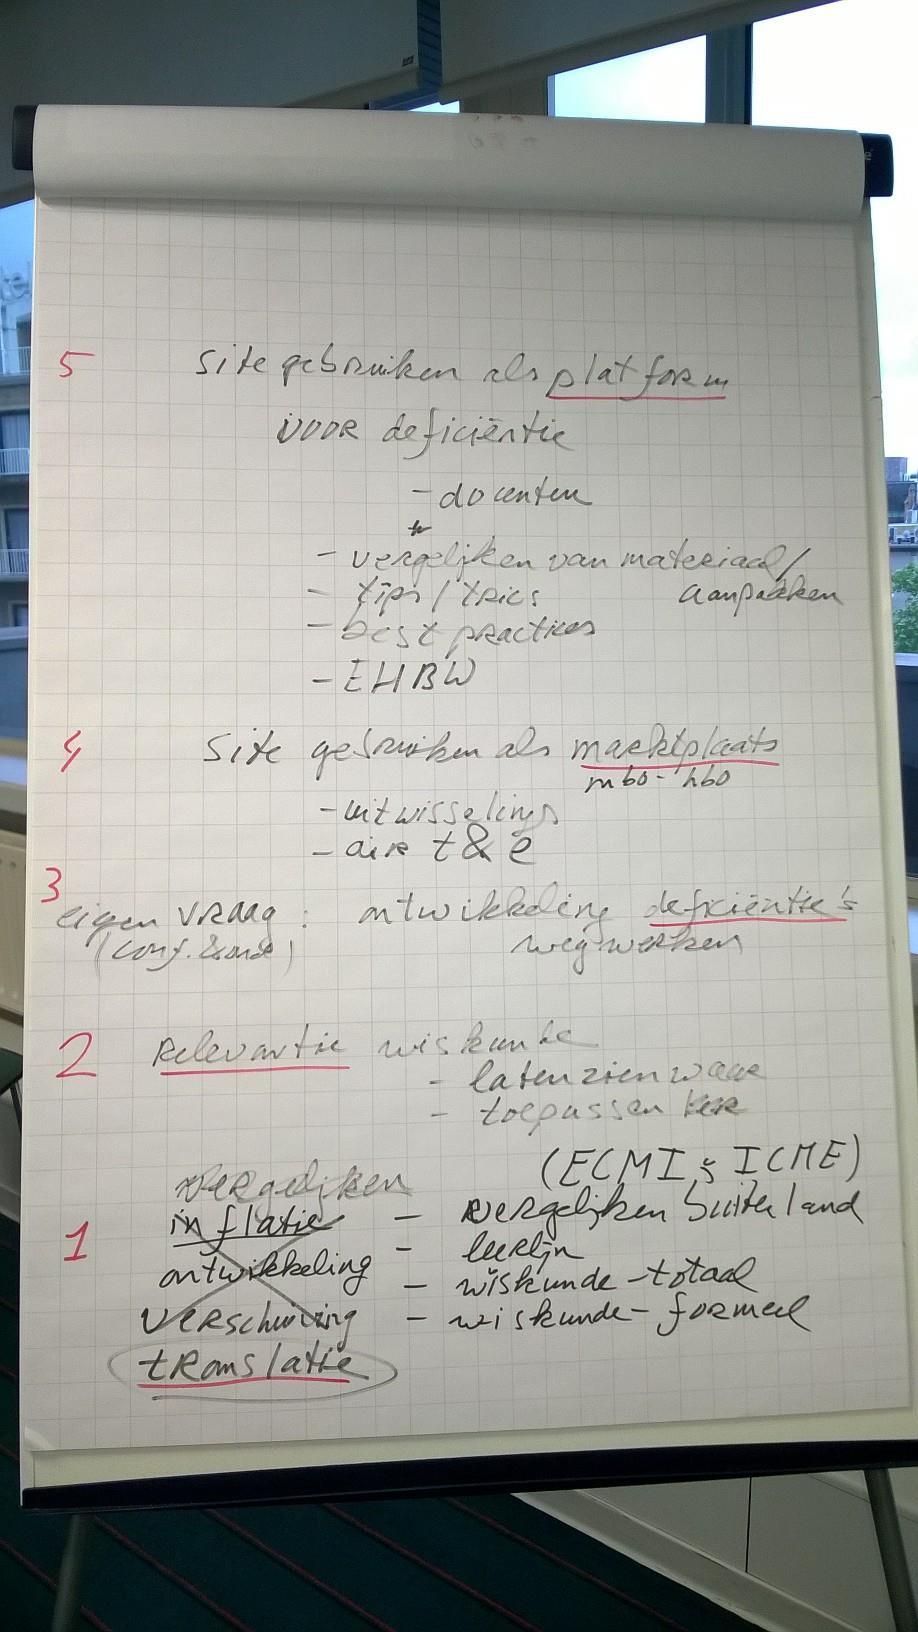 5 site gebruiken als platform
VOOR deficiëntie
- docenten
- vergelijken van materiaal/
aanpakken
- tips/trics
- best practices
- EHBW
4 site gebruiken als marktplaats
mbo - hbo
- uitwisselings
- t & e
3
eigen VRaag : ontwikkeling deficiëntie's
(conf. ) wegwerken
2 Relevantie wiskunde
- laten zien waar
- toepassen
(ECMI & ICME)
vergelijken
1 inflatie - vergelijken buitenland
- leerlijn
ontwikkeling - wiskunde-totaal
verschuiving - wiskunde-formeel
translatie